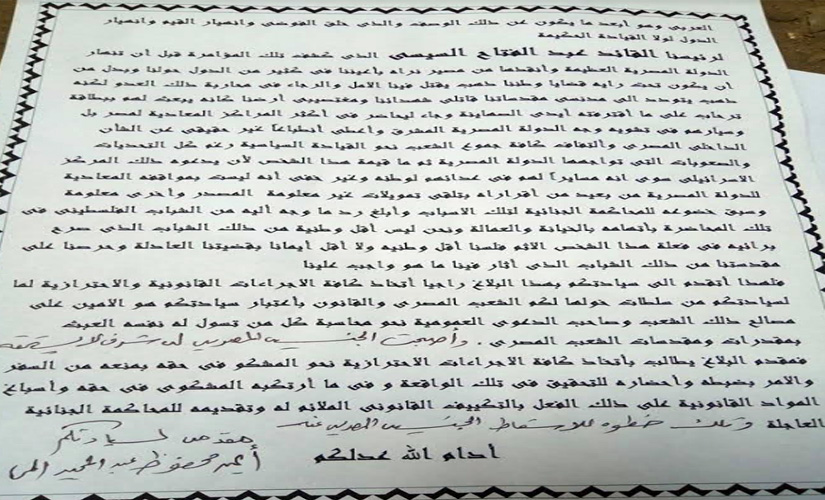 العربى وهو أبعد ما يكون عن ذلك الوصف والذى خلق الفوضى وأنهيار القيم وأنهيار
الدول لولا القيادة الحكيمة
لرئيسنا القائد عبد الفتاح السيسى الذى كشف تلك المؤامرة قبل أن تنهار
الدولة المصرية العظيمة وأنقذها من مصير نراه بأعيننا فى كثير من الدول حولنا وبدل من
أن يكون تحت رايه قضايا وطننا ذهب يقتل فينا الأمل والرجاء فى محاربة ذلك العدو لكنه
ذهب يتودد الى مدنسى مقدساتنا قاتلى شهدائنا ومغتصبى أرضنا كانه يبعث لهم ببطاقة
ترحاب على ما أقترفته أيدى الصهاينة وجاء ليحاضر فى أكثر المراكز المعادية لمصر بل
وسيارهم فى تشويه وجه الدولة المصرية المشرق وأعطى أنطباعاً غير حقيقى عن الشأن
الداخلى المصرى وألتفاف كافة جموع الشعب نحو القيادة السياسية رغم كل التحديات
والصعوبات التى تواجهها الدولة المصرية ثم ما قيمة هذا الشخص لأن يدعوه ذلك المركز
الاسرائيلى سوى انه مسايراً لهم فى عدائهم لوطنه وغير خفى أنه ليست بمواقفه المعادية
للدولة المصرية من بعيد من أقراراه بتلقى تمويلات غير معلومة المصدر وأخرى معلومة
وسبق خضوعه للمحاكمة الجنائية لتلك الاسباب وأبلغ رد ما وجه أليه من الشباب الفلسطينى فى
تلك المحاضرة بأتهامه بالخيانة والعمالة ونحن ليس أقل وطنية من ذلك الشباب الذى صرع
برائيه فى فعلة هذا الشخص الاثم فلسنا أقل وطنيه ولا أقل أيمانا بقضيتنا العادلة وحرصنا على
مقدستنا من ذلك الشباب الذى أثار فينا ما هو واجب علينا
فلهذا أتقدم الى سيادتكم بهذا البلاغ راجيا أتخاذ كافة الاجراءات القانونية والاحترازية لما
لسيادتكم من سلطات خولها لكم الشعب المصرى والقانون بأعتبار سيادتكم هو الامين على
مصالح ذلك الشعب وصاحب الدعوى العمومية نحو محاسبة كل من تسول له نفسه العبث
بمقدرات ومقدسات الشعب المصرى . وأصبحت الجنسية المصرية له شرف لا يستحقه
فمقدم البلاغ يطالب بأتخاذ كافة الاجراءات الاحترازية نحو المشكو فى حقه بمنعه من السفر
والامر بضبطه وأحضاره للتحقيق فى تلك الواقعة و فى ما أرتكبه المشكوى فى حقه وأسباغ
المواد القانونية على ذلك الفعل بالتكييف القانونى الملائم له وتقديمه للمحاكمة الجنائية
العاجلة وتلك خطوه للاسقاط الجنسية المصرية عنه
أدام الله عدلكم
مقدمه لسيادتكم
أيمن محفوظ عبد الحميد